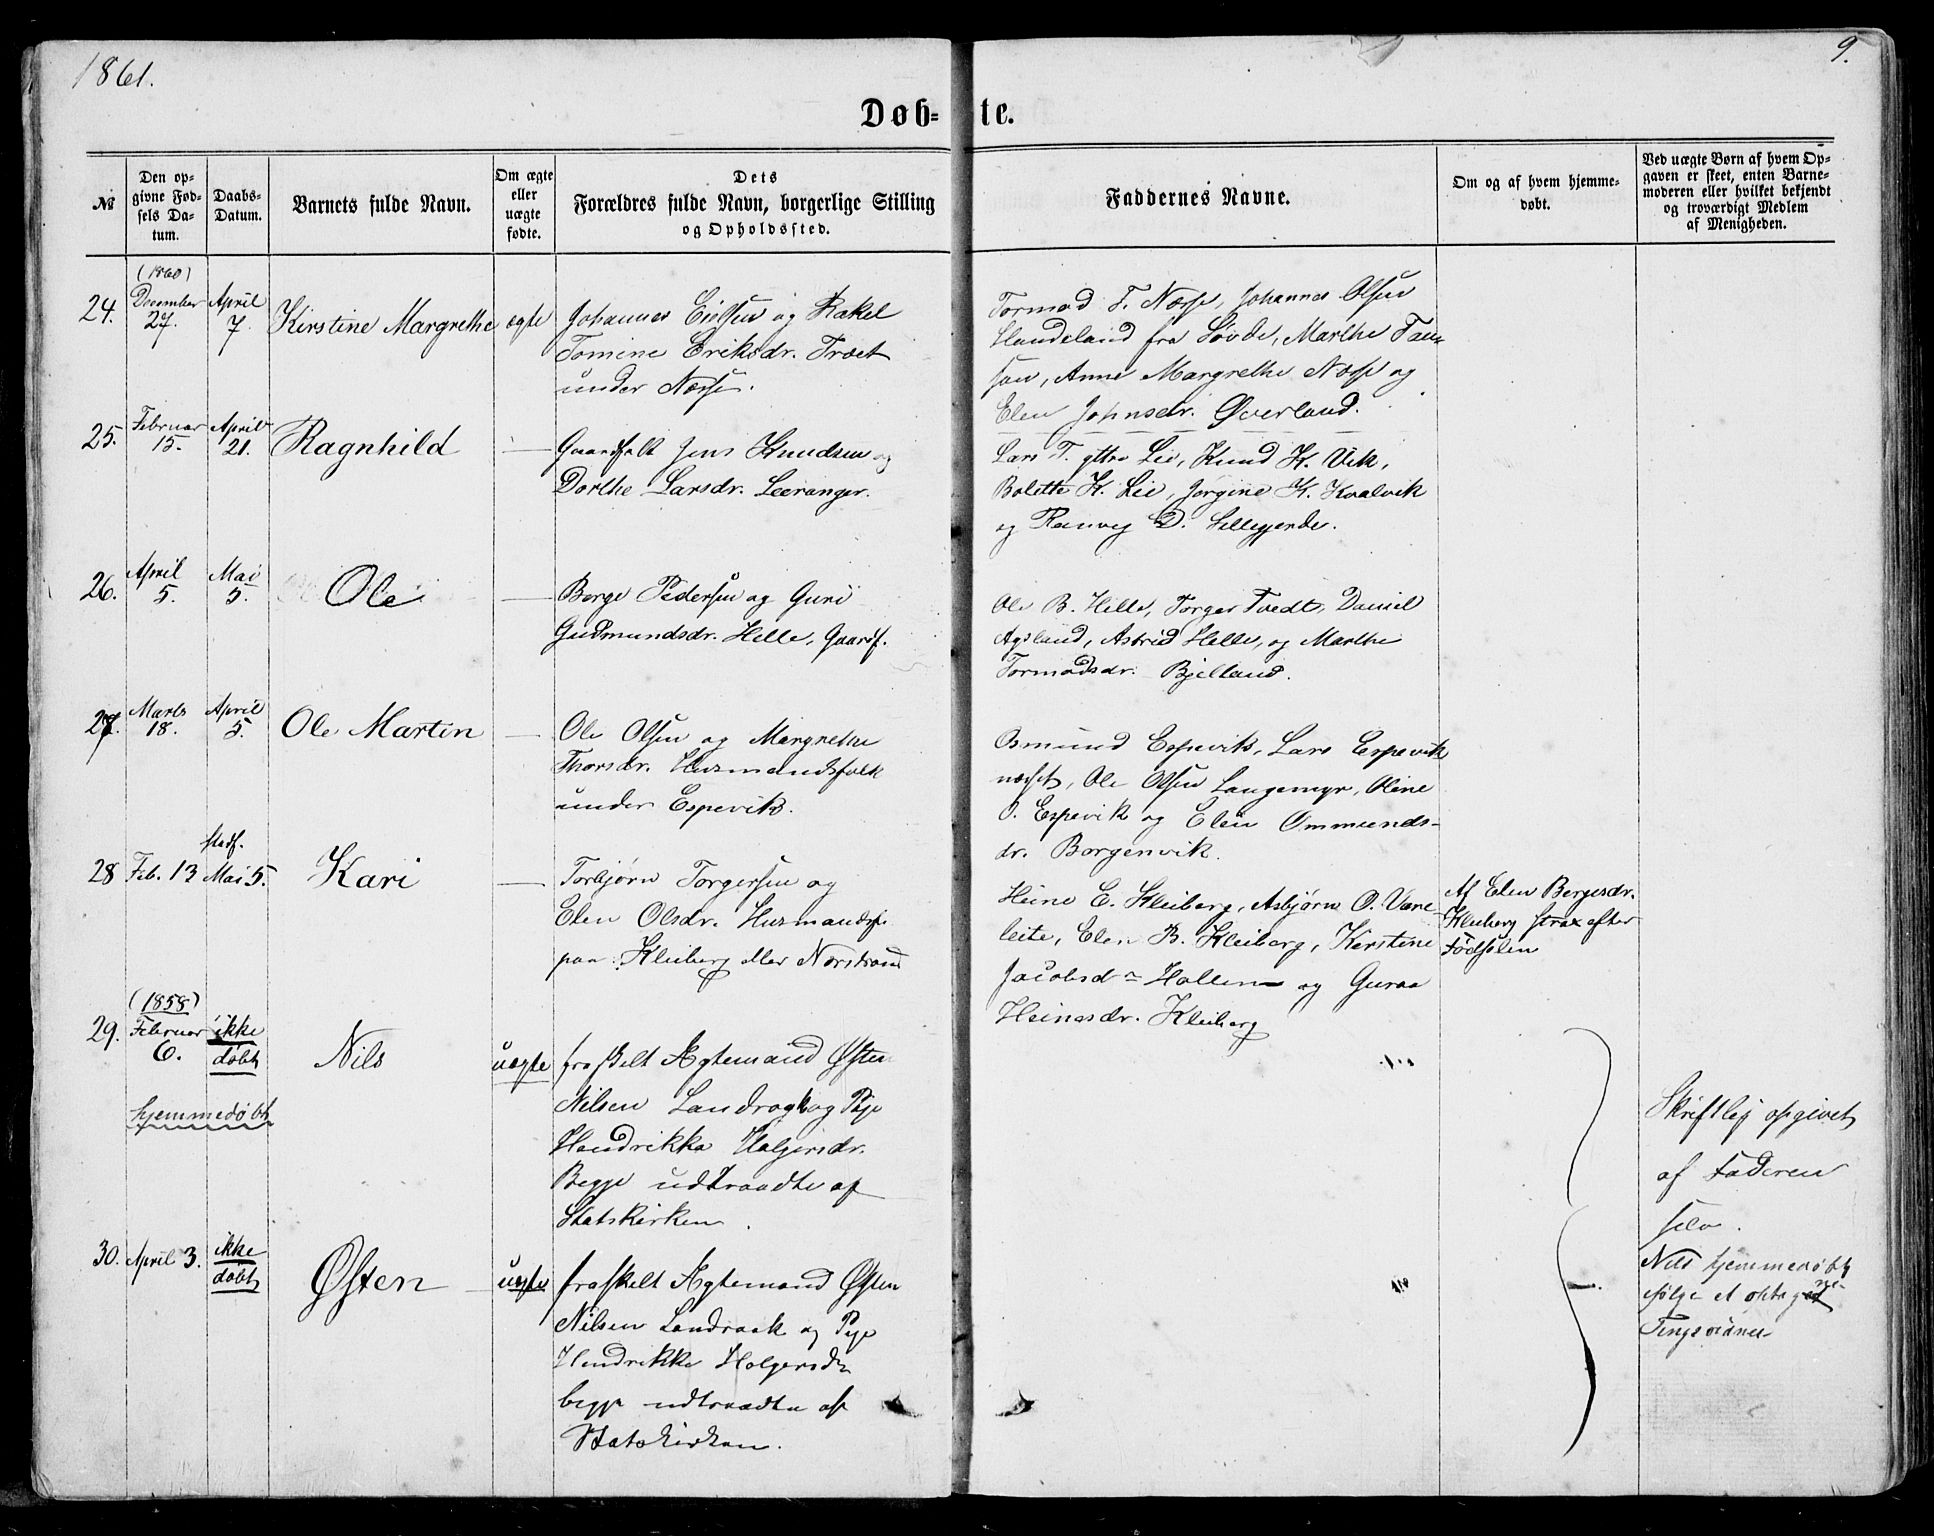 1861.
9.
Døb-
te.
№
Den op-
givne Fød-
sels Da-
tum.
Daabs-
Datum.
Barnets fulde Navn.
Om ægte
eller
uægte
fødte.
Dets
Forældres fulde Navn, borgerlige Stilling
og Opholdssted.
Faddernes Navne.
Om og af hvem hjemme-
døbt.
Ved uægte Børn af hvem Op-
gaven er skeet, enten Barne-
moderen eller hvilket bekjendt
og troværdigt Medlem
af Menigheden.
24.
(1860)
December
27.
April
7.
Kirstine Margrethe
ægte
Johannes og Rakel
Tomine Eriksdr. Træet
under Næsse.
Tormod T. Næsse, Johannes Olsen
Handeland fra Søvde, Marthe Tau-
san, Anne Margrethe Næsse og
Elen Johnsdr. Øverland.
25.
Februar
15.
April
21.
Ragnhild
—
Gaardfolk Jens Knudsen og
Dorthe Larsdr. Leeranger.
Lars T. yttre Lie, Knud K. Vik,
Bolette K. Lie, Jorgine K. Kvalvik
og Ranveg D.
26.
April
5.
Mai
5.
Ole
—
Børge Pedersen og Guri
Gudmundsdr. Helle, Gaardf.
Ole B. Hille, Torger Tvedt, Daniel
Agsland, Astrid Helle, og Marthe
Tormodsdr. Bjelland.
27.
Marts
18.
April
5.
Ole Martin
—
Ole Olsen og Margrethe
Thorsdr. Husmandsfolk
under Espevik.
Osmund Espevik, Lars Espevik
næsset, Ole Olsen Langemyr, Oline
O. Espevik og Elen Ommunds-
dr. Borgenvik.
28
Feb. 13
stadf.
Mai 5.
Kari
—
Torbjørn Torgersen og
Elen Olsdr. Husmandsf.
paa Kleiberg eller Nærstrand
Heine E. Kleiberg, Asbjørn O. Vare
leite, Elen B. Kleiberg, Kirstine
Jacobsdr Hallen og Guraa
Heinesdr. Kleiberg
Af Elen Børgesdr.
Kleiberg strax efter
Fødselen
29.
(1858)
Februar
6.
ikke
døbt
hjemmedøbt
Nils
uægte
fraskilt Ægtemand Østen
Nilsen Landraak og Pige
Hendrikka Holgersdr.
Begge udtraadte af
Statskirken.
Skriftlig opgivet
af Faderen
selv.
30.
April 3.
ikke
døbt
Østen
uægte
fraskilt Ægtemand Østen
Nilsen Landraak og Pige
Hendrikke Holgersdr
begge udtraadte af
Statskirken.
Nils hjemmedøbt
ifølge et optaget
Tingsvidne